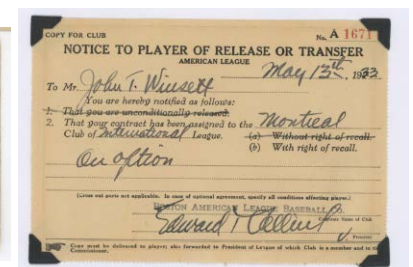 COPY FOR CLUB
No. A 1671
NOTICE TO PLAYER OF RELEASE OR TRANSFER
AMERICAN LEAGUE
May 13th, 1933
To Mr. John T. Winsett
You are hereby notified as follows:
1. That you are unconditionally released.
2. That your contract has been assigned to the Montreal
Club of International League. (a) Without right of recall.
(b) With right of recall.
On option
(Cross out parts not applicable. In case of optional agreement, specify all conditions affecting player.)
BOSTON AMERICAN LEAGUE BASEBALL CO.
Corporate Name of Club
Edward T Collins
President
Copy must be delivered to player; also forwarded to President of League of which Club is a member and to the
Commissioner.